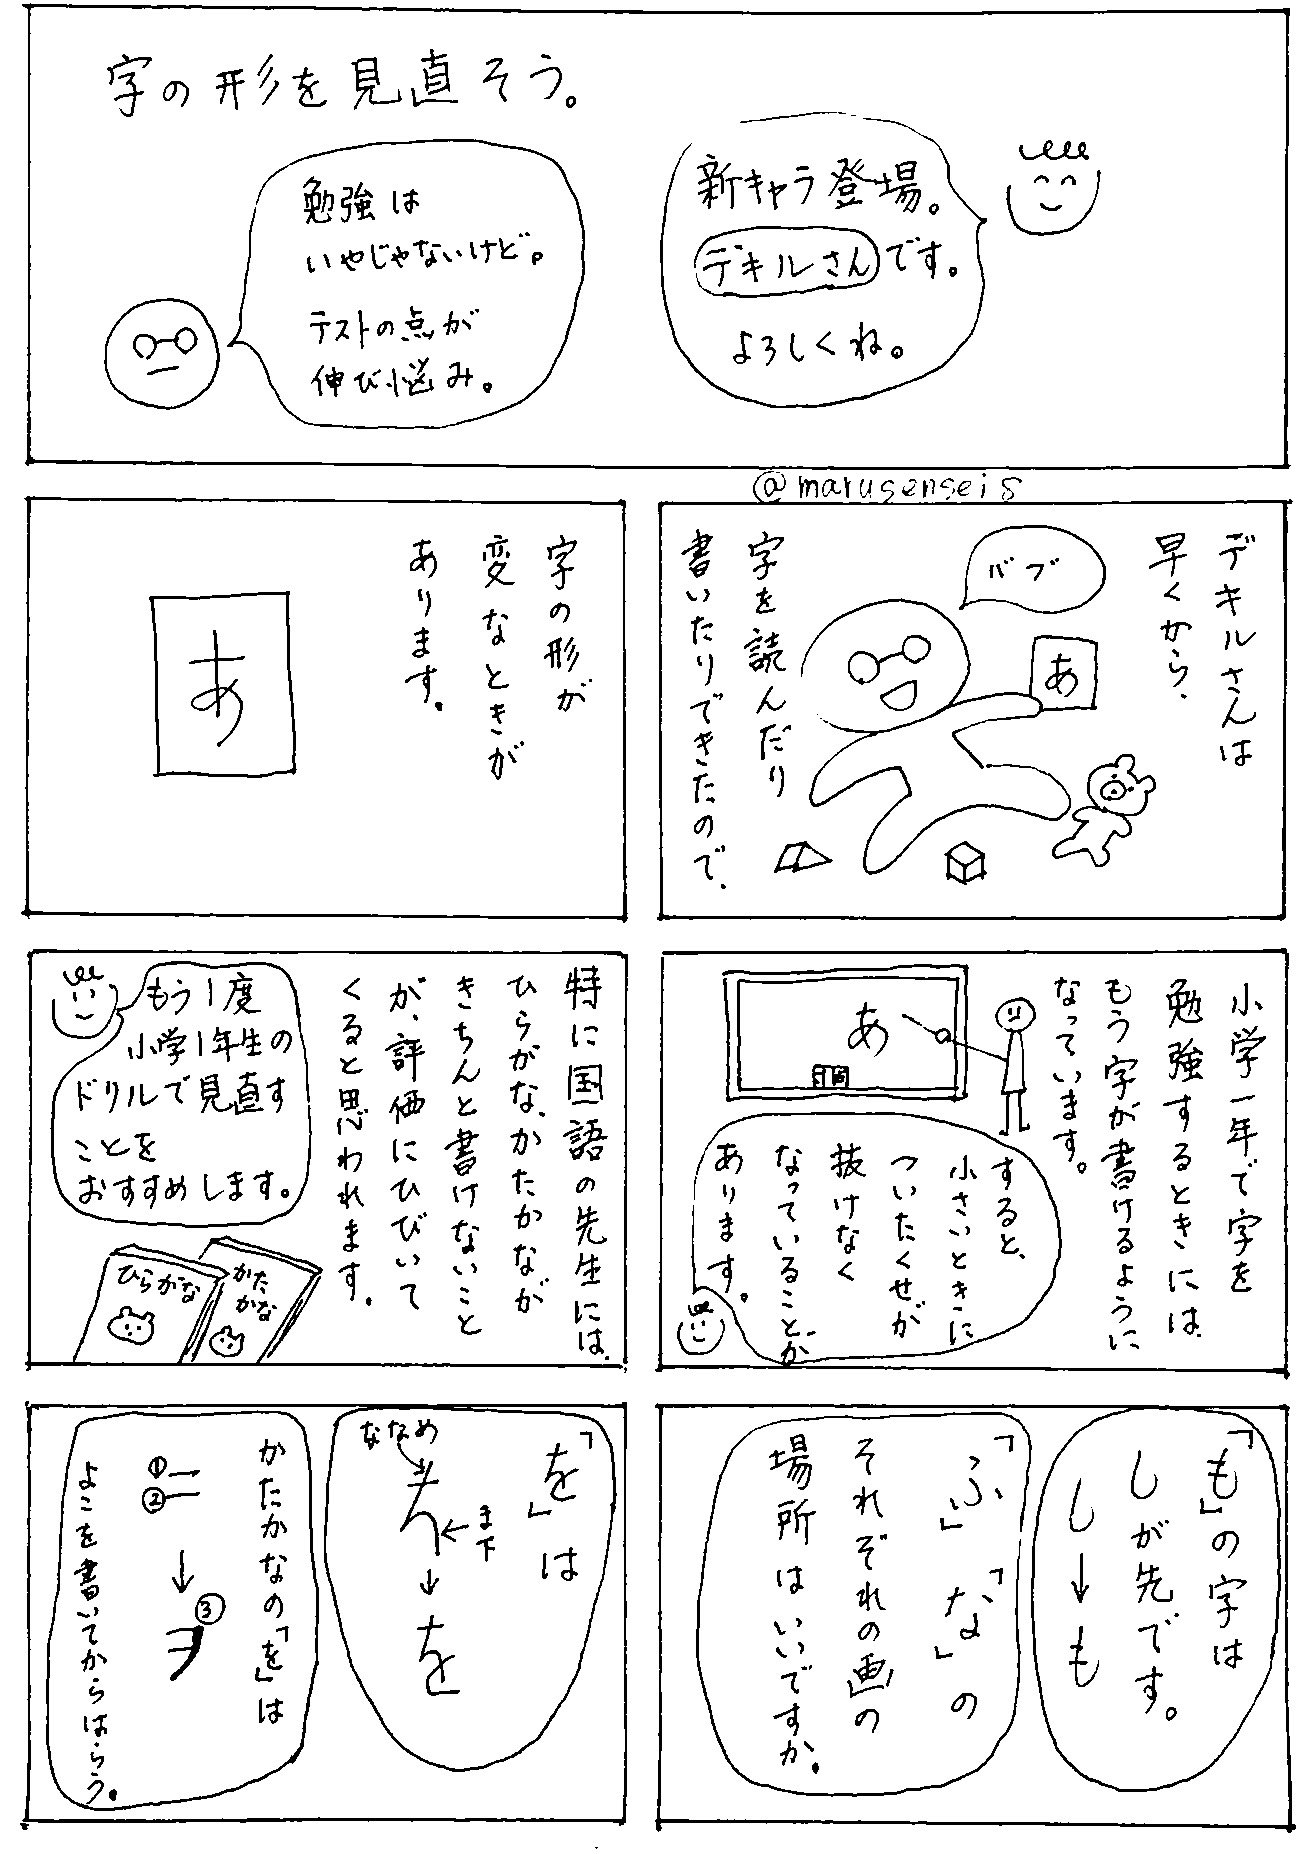 字の形を見直そう。
新キャラ登場。
デキルさんです。
よろしくね。
勉強は
いやじゃないけど。
テストの点が
伸び悩み。
@marusensei8
デキルさんは
早くから、
バブ
あ
字を読んだり
書いたりできたので、
字の形が
変なときが
あります。
あ
小学一年で字を
勉強するときには、
もう字が書けるように
なっています。
あ
すると、
小さいときに
ついたくせが
抜けなく
なっていることが
あります。
特に国語の先生には、
ひらがな、かたかなが
きちんと書けないこと
が、評価にひびいて
くると思われます。
もう1度
小学1年生の
ドリルで見直す
ことを
おすすめします。
ひらがな
かた
かな
「も」の字は
しが先です。
し→も
「ふ」「な」の
それぞれの画の
場所はいいですか。
「を」は
ななめ
ま下
↓
を
かたかなの「を」は
①
②
↓
③
ヲ
よこを書いてからはらう。